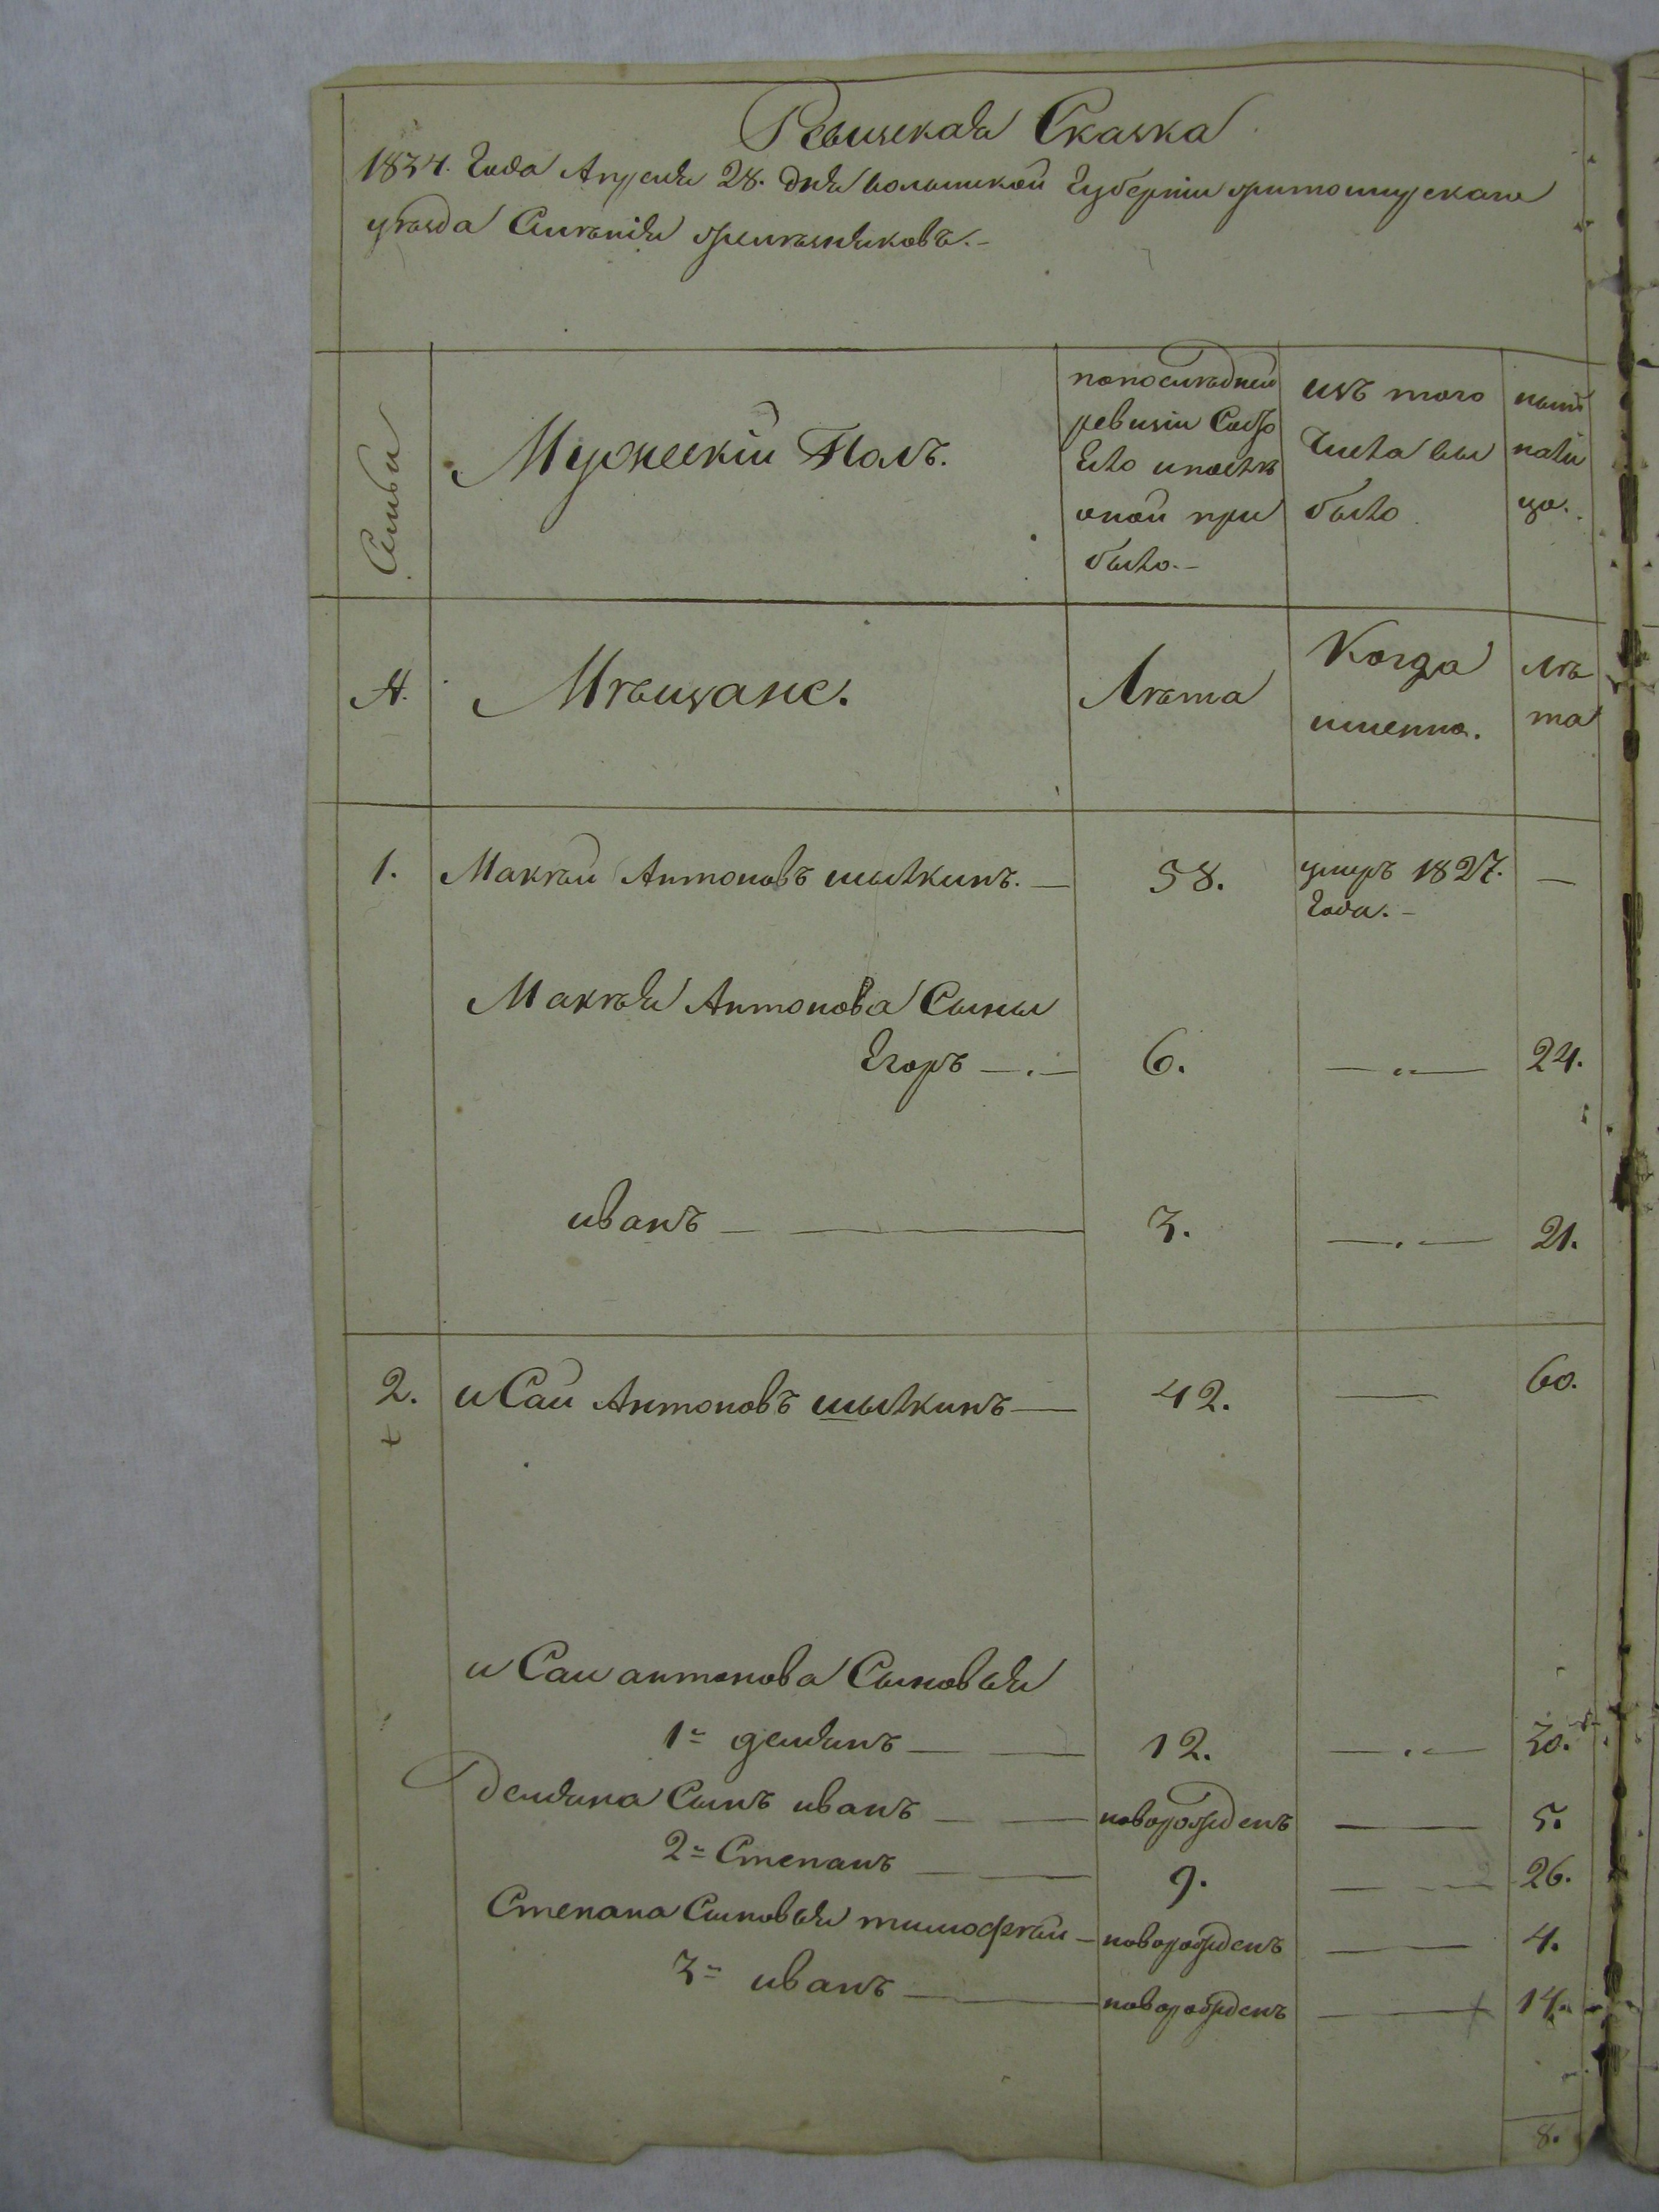 Ревизская Сказка
1834. Года Апреля 28. дня волынской Губернии житомирскаго
уезда Слободы
Семьи
Мужескiй Полъ.
попоследней
ревизiи Состо
яло ипосле
оной при
было.-
изъ того
Числа вы
было
ныне
нали
цо.
№.
Мѣщане.
Лѣта
Когда
имянно.
лѣ
та
1.
Макѣй Антоновъ шылкинъ. —
58.
умеръ 1827.
Года.-
—
Макѣя Антонова Сыны
Егоръ — . —
6.
— „ —
24.
иванъ — —
3.
— . —
21.
2.
исай Антоновъ шылкинъ —
42.
—
60.
исаи антонова Сыновья
1й демянъ — —
12.
— . —
30.
демяна Сынъ иванъ — —
новорожденъ
—
5.
2й Степанъ — —
9.
— —
26.
Степана Сыновья тимофѣй —
новорожденъ
— —
4.
3й иванъ —
новорожденъ
—
14.
8.